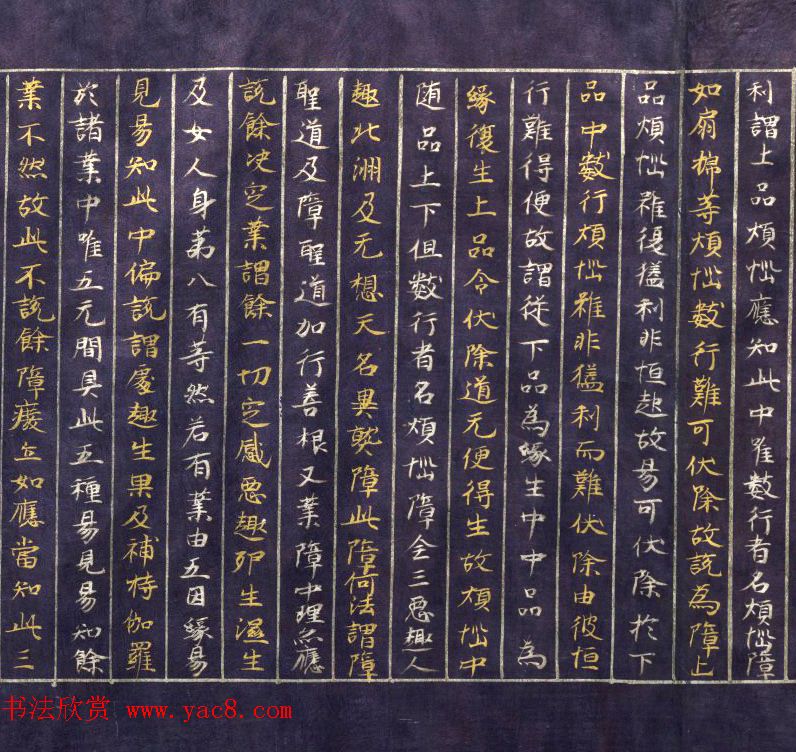 利謂上品煩惱應知此中唯數行者名煩惱障
如扇搋等煩惱數行難可伏除故說為障上
品煩惱雖復猛利非恒起故易可伏除於下
品中數行煩惱雖非猛利而難伏除由彼恒
行難得便故謂從下品為緣生中中品為
緣復生上品令伏除道无便得生故煩惱中
随品上下但數行者名煩惱障全三惡趣人
趣北洲及无想天名異熟障此障何法謂障
聖道及障聖道加行善根又業障中理亦應
說餘决定業謂餘一切定感惡趣卵生濕生
及女人身苐八有等然若有業由五因緣易
見易知此中偏說謂處趣生果及補特伽羅
於諸業中唯五无間具此五種易見易知餘
業不然故此不說餘障癈立如應當知此三
书法欣赏 www.yac8.com